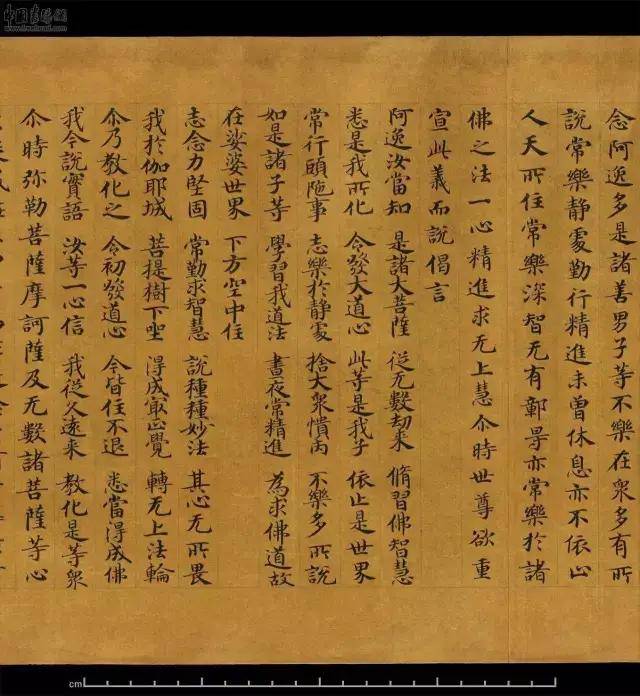 念阿逸多是諸善男子等不樂在衆多有所
說常樂静處勤行精進未曾休息亦不依止
人天所住常樂深智无有鄣㝵亦常樂於諸
佛之法一心精進求无上慧尒時世尊欲重
宣此義而說偈言
阿逸汝當知 是諸大菩薩 從无數劫來 脩習佛智慧
悉是我所化 令發大道心 此等是我子 依止是世界
常行頭陁事 志樂於静處 捨大衆憒丙 不樂多所說
如是諸子等 學習我道法 晝夜常精進 為求佛道故
在娑婆世界 下方空中住
志念力堅固 常勤求智慧 說種種妙法 其心无所畏
我於伽耶城 菩提樹下坐 得成㝡正覺 轉无上法輪
尒乃教化之 令初發道心 今皆住不退 悉當得成佛
我今說實語 汝等一心信 我從久遠來 教化是等衆
尒時弥勒菩薩摩訶薩及无數諸菩薩等心
cm